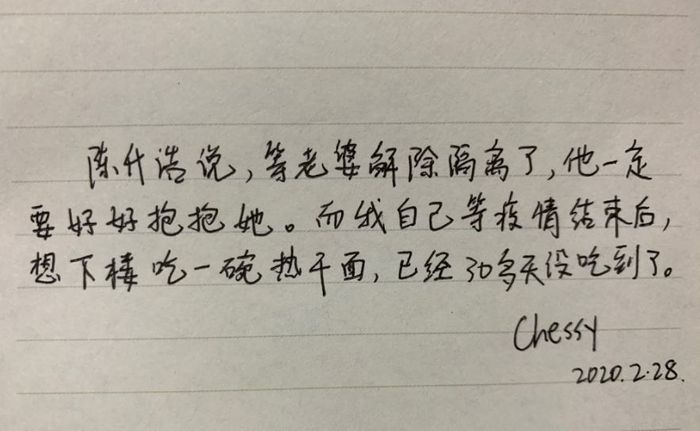 陈升浩说，等老婆解除隔离了，他一定
要好好抱抱她。而我自己等疫情结束后，
想下楼吃一碗热干面，已经30多天没吃到了。
Chessy
2020.2.28.